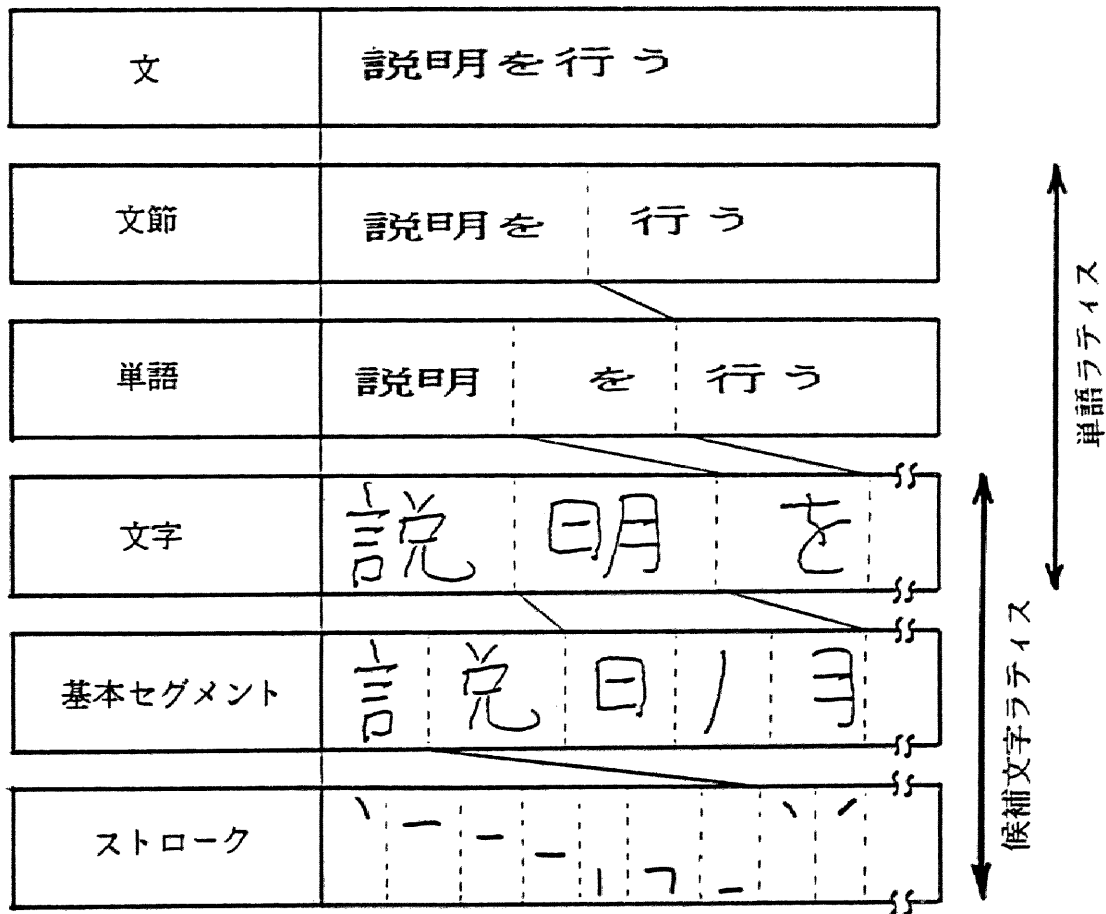 文 説明を行う
文節 説明を 行う
単語 説明 を 行う
文字 説明を
基本セグメント 言 兑 日 丿 ヨ
ストローク
単語ラティス
候補文字ラティス